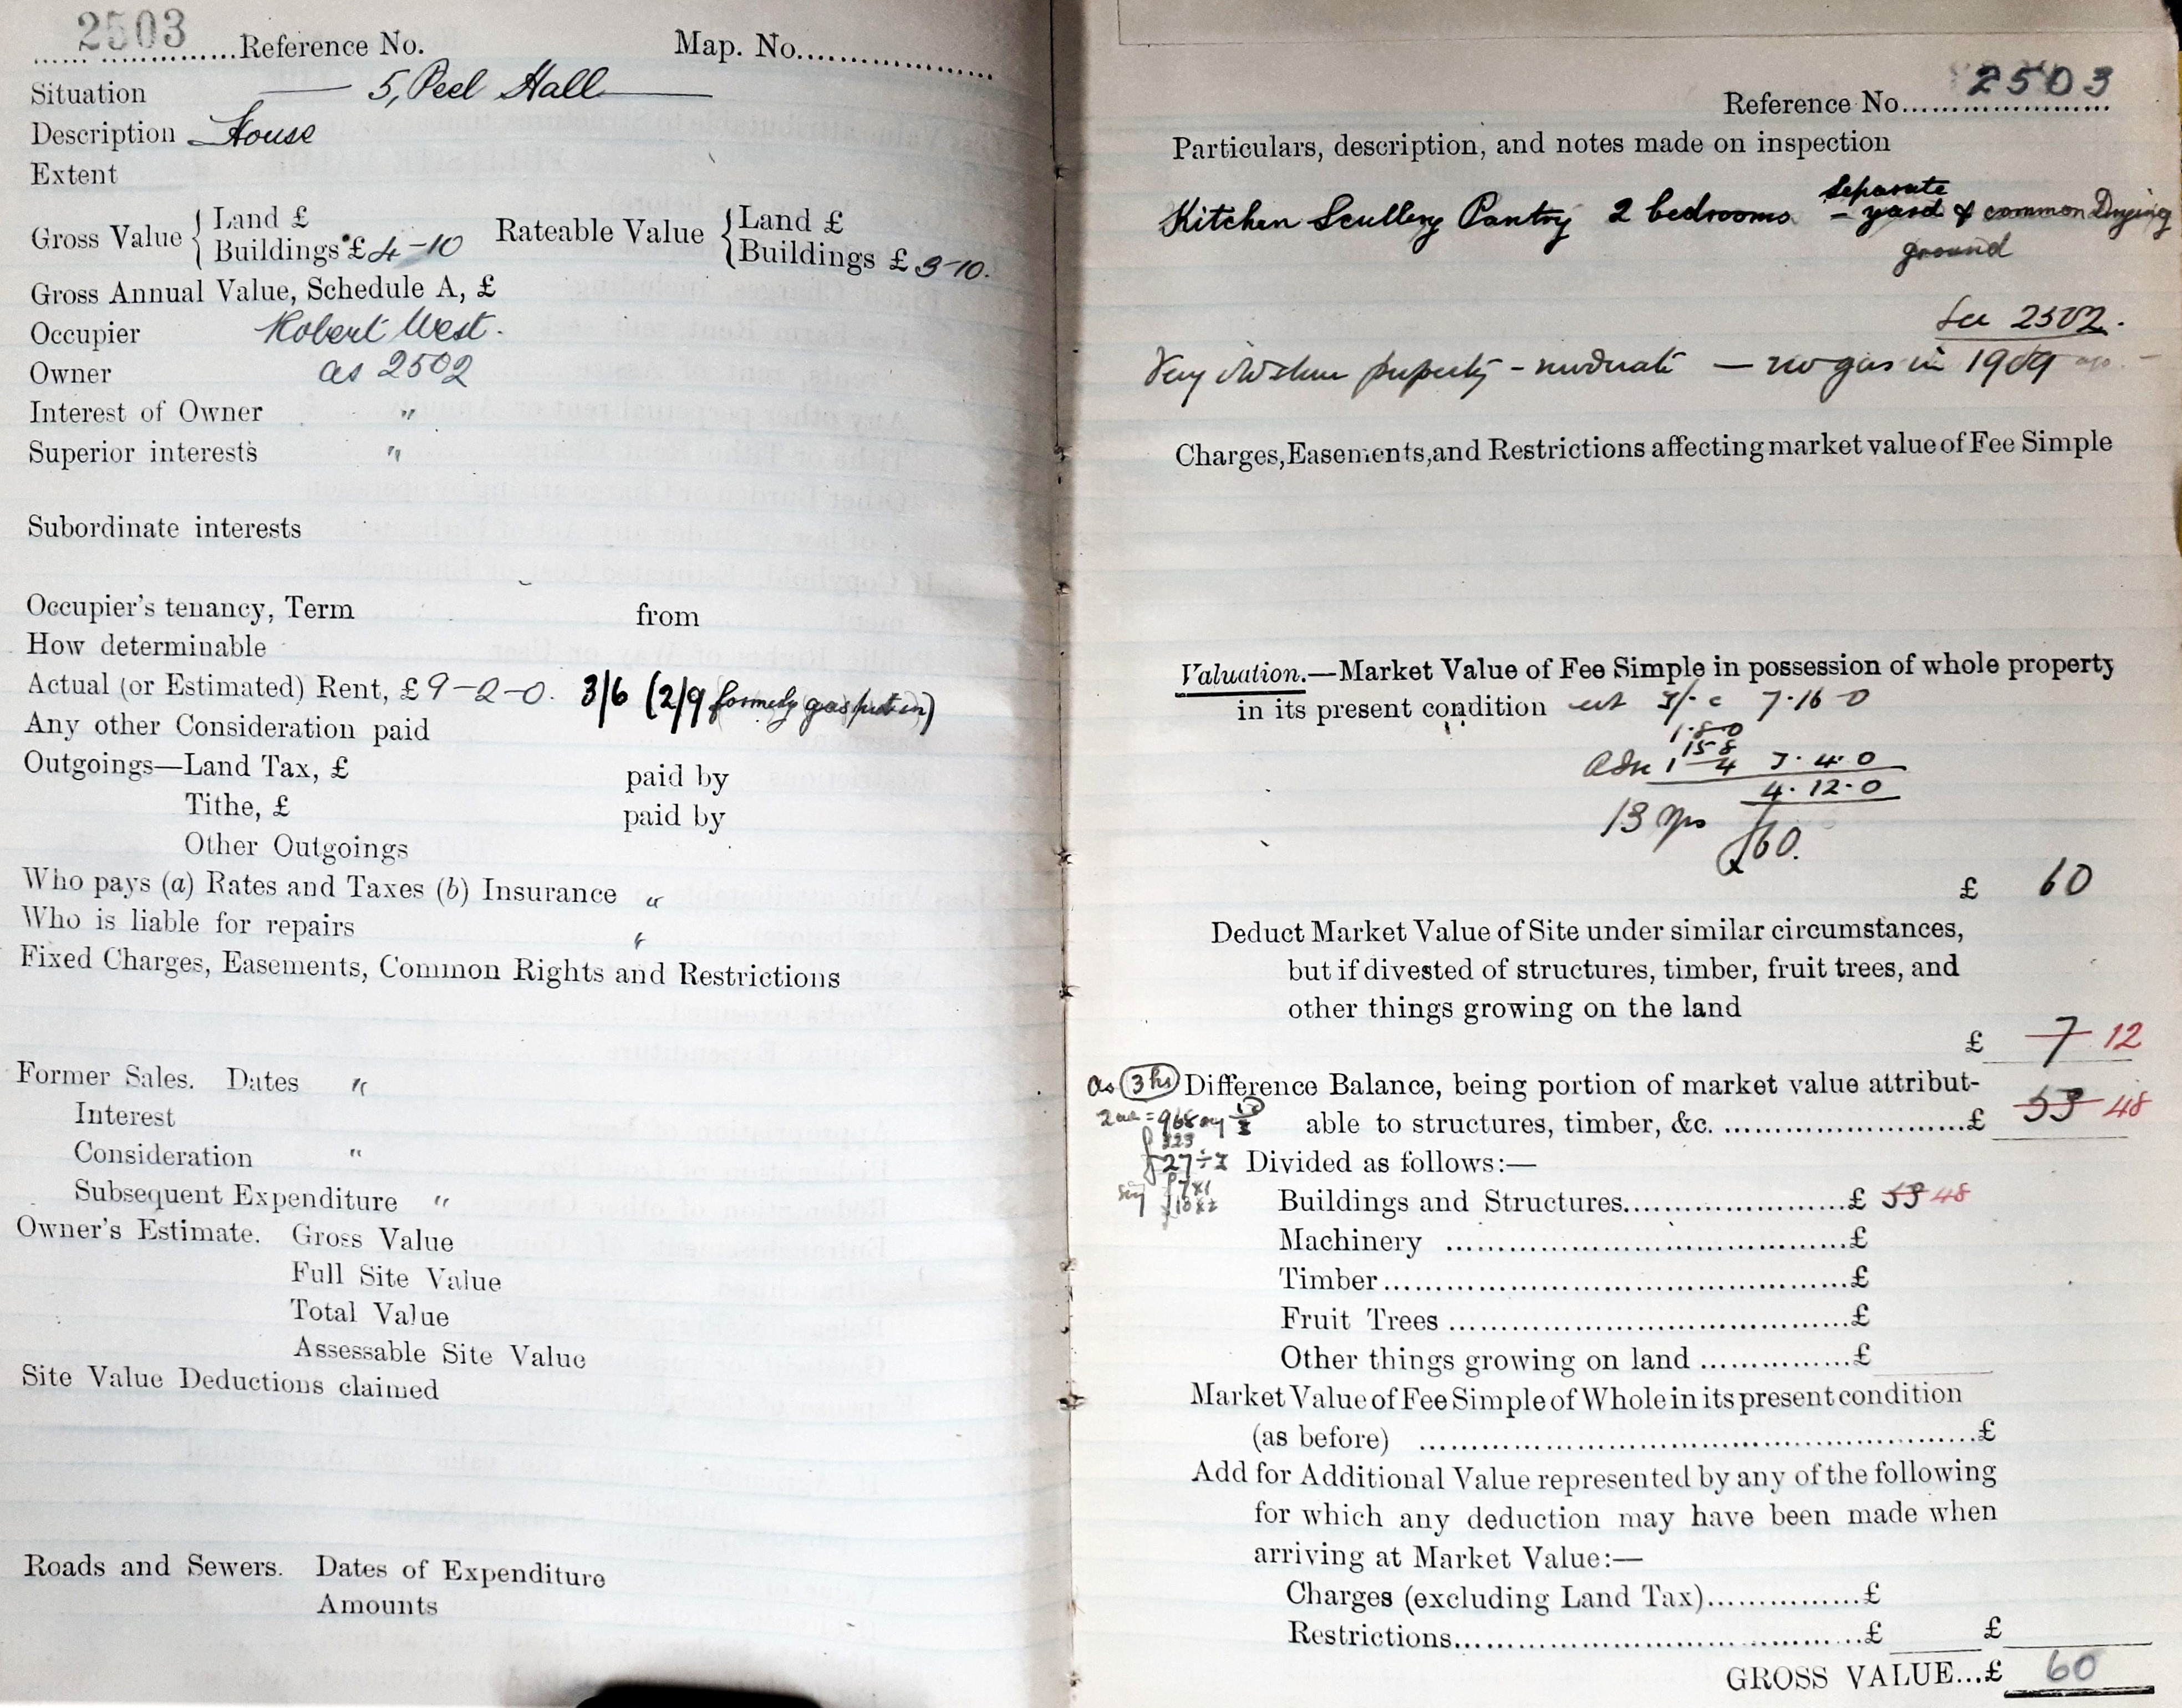 2503 Reference No. Map. No.
Situation — 5, Peel Hall —
Description House
Extent
Gross Value { Land £
Buildings £ 4-10
Rateable Value { Land £
Buildings £ 3-10.
Gross Annual Value, Schedule A, £
Occupier Robert West.
Owner as 2502
Interest of Owner "
Superior interests "
Subordinate interests
Occupier's tenancy, Term from
How determinable
Actual (or Estimated) Rent, £ 9-2-0. 3/6 (2/9 formerly gas put in)
Any other Consideration paid
Outgoings—Land Tax, £ paid by
Tithe, £ paid by
Other Outgoings
Who pays (a) Rates and Taxes (b) Insurance "
Who is liable for repairs "
Fixed Charges, Easements, Common Rights and Restrictions
Former Sales. Dates "
Interest
Consideration "
Subsequent Expenditure "
Owner's Estimate. Gross Value
Full Site Value
Total Value
Assessable Site Value
Site Value Deductions claimed
Roads and Sewers. Dates of Expenditure
Amounts
Reference No. 2503
Particulars, description, and notes made on inspection
Kitchen Scullery Pantry 2 bedrooms – separate yard & common Drying
ground
See 2502.
Very old stone property - moderate — no gas in 1909
Charges, Easements, and Restrictions affecting market value of Fee Simple
Valuation.—Market Value of Fee Simple in possession of whole property
in its present condition est 3/- c 7·16·0
1·8·0
15 8
1 4 3·4·0
4·12·0
13 yrs £60.
£ 60
Deduct Market Value of Site under similar circumstances,
but if divested of structures, timber, fruit trees, and
other things growing on the land
£ 7 12
as 3 hs Difference Balance, being portion of market value attribut-
able to structures, timber, &c. £ 53 48
2 = 968
£27÷3
£7x1
£10x2
Divided as follows:—
Buildings and Structures £ 53 48
Machinery £
Timber £
Fruit Trees £
Other things growing on land £
Market Value of Fee Simple of Whole in its present condition
(as before) £
Add for Additional Value represented by any of the following
for which any deduction may have been made when
arriving at Market Value:—
Charges (excluding Land Tax) £
Restrictions £ £
GROSS VALUE...£ 60